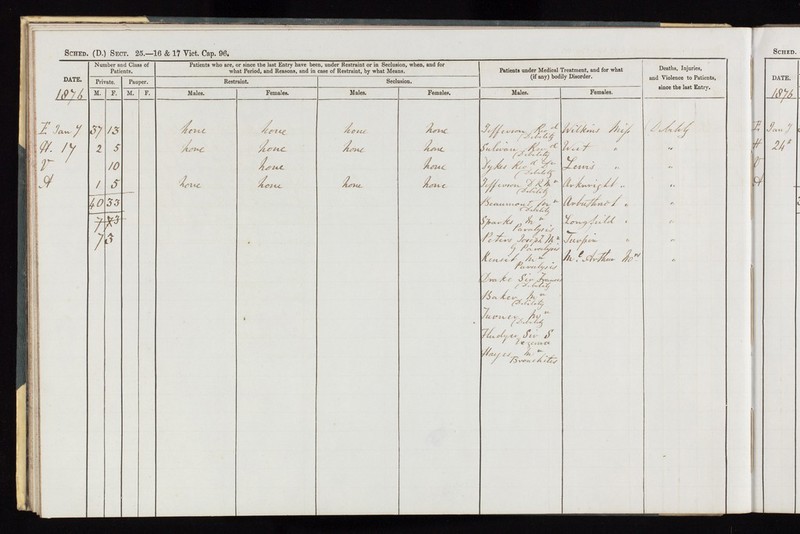 SCHED. (D.) SECT. 25.—16 & 17 Vict. Cap. 96.
DATE.
1876
Number and Class of Patients.
Private. Pauper.
M. F. M. F.
Patients who are, or since the last Entry have been, under Restraint or in Seclusion, when, and for
what Period, and Reasons, and in case of Restraint, by what Means.
Restraint. Seclusion.
Males. Females. Males. Females.
Patients under Medical Treatment, and for what
(if any) bodily Disorder.
Males. Females.
Deaths, Injuries,
and Violence to Patients,
since the last Entry.
Jan 7 37 13 none none none none Jefferson Revd Wilkins Miss Debility
(Debility
H. 14 2 5 none none none none Sulivan Revd West "
(Debility
V 10 none none Sykes Revd Lewis "
(Debility
A 1 5 none none none none Jefferson Mr Arkwright "
(Debility
40 33 Beaumont Mr Arbuthnot "
(Debility
73 Sparks Mr Longfield "
Paralysis
73 Peters Joseph Mr Turpin "
G Paralysis
Mr McArthur Mrs "
Paralysis
Drake Sir Francis
(Debility
Baker Mr
(Debility
Turner Mr
(Debility
Sir S
Eczema
Hayes Mr
Bronchitis
SCHED.
DATE.
1876
Jan 7
H 24
V
A